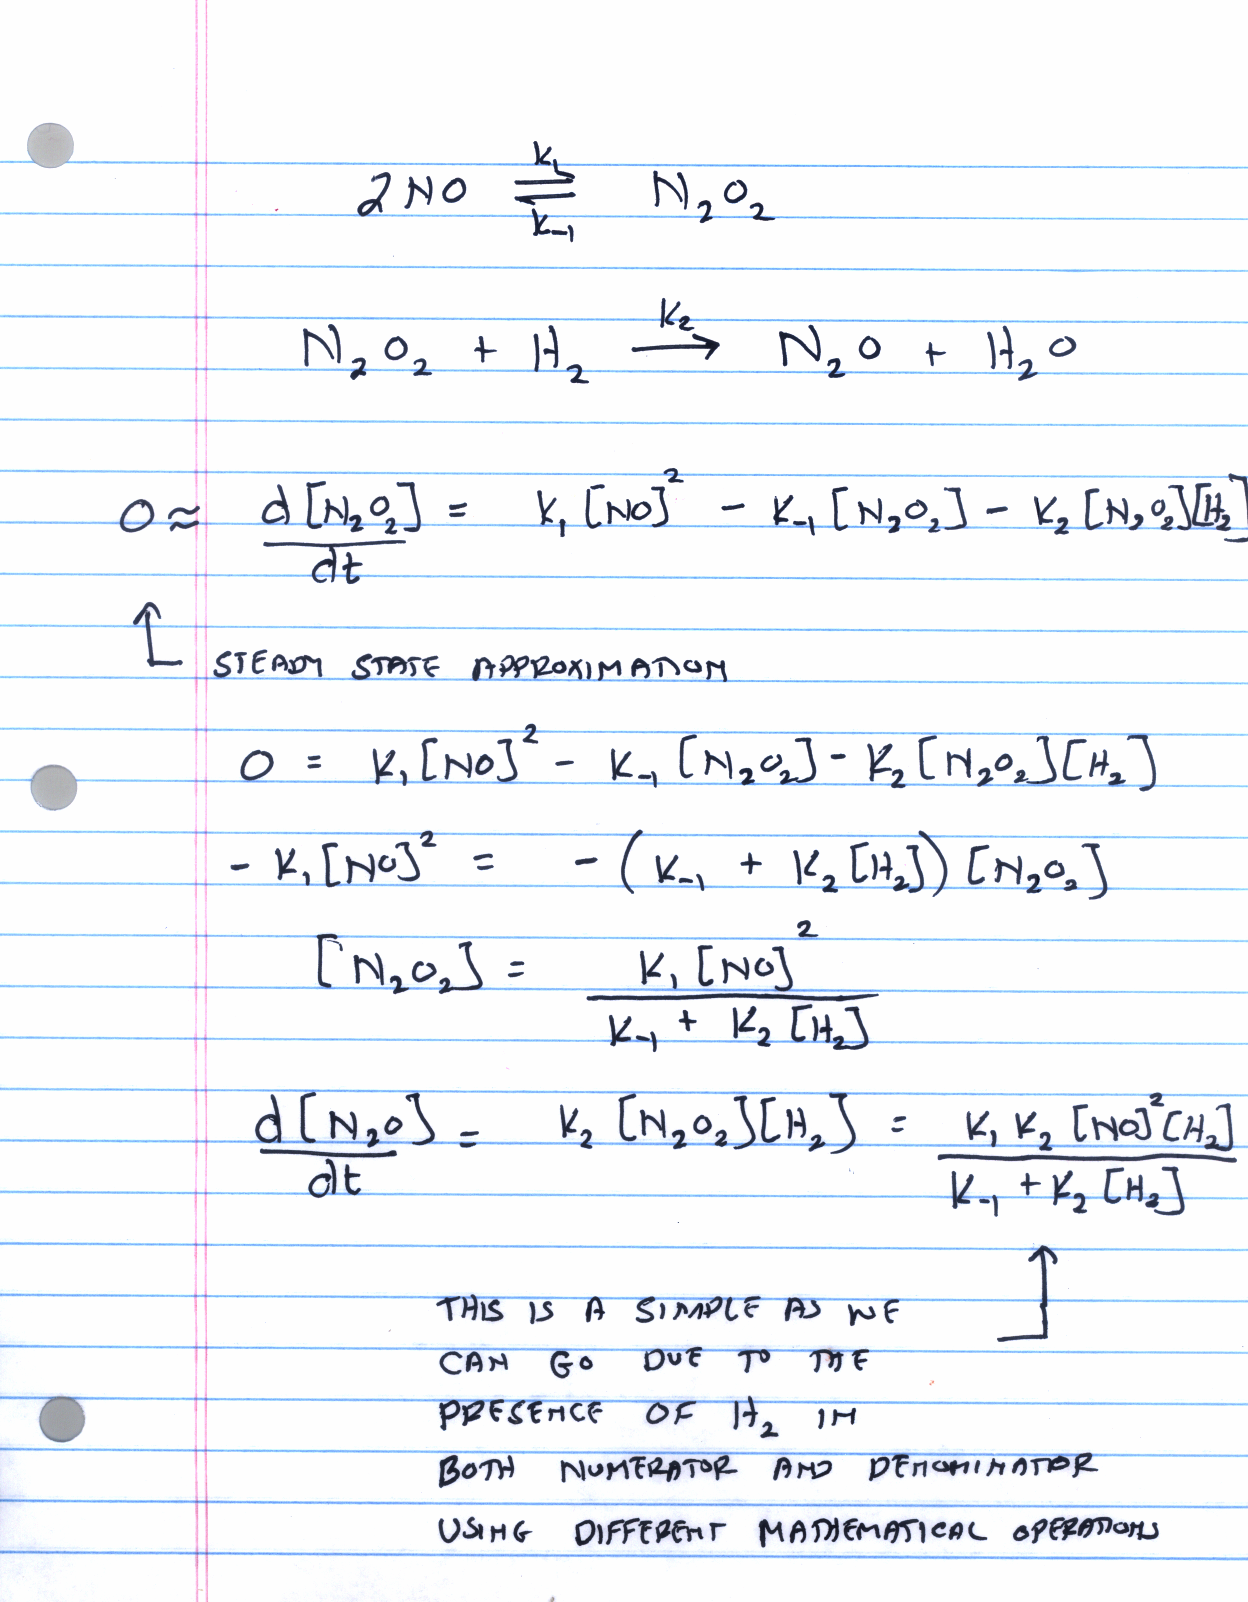 2NO ⇌ N₂O₂ (k₁ above, k₋₁ below)
N₂O₂ + H₂ —k₂→ N₂O + H₂O
0 ≈ d[N₂O₂]/dt = k₁[NO]² - k₋₁[N₂O₂] - k₂[N₂O₂][H₂]
STEADY STATE APPROXIMATION
0 = k₁[NO]² - k₋₁[N₂O₂] - k₂[N₂O₂][H₂]
- k₁[NO]² = -(k₋₁ + k₂[H₂])[N₂O₂]
[N₂O₂] = k₁[NO]² / (k₋₁ + k₂[H₂])
d[N₂O]/dt = k₂[N₂O₂][H₂] = k₁k₂[NO]²[H₂] / (k₋₁ + k₂[H₂])
THIS IS A SIMPLE AS WE
CAN GO DUE TO THE
PRESENCE OF H₂ IN
BOTH NUMERATOR AND DENOMINATOR
USING DIFFERENT MATHEMATICAL OPERATIONS